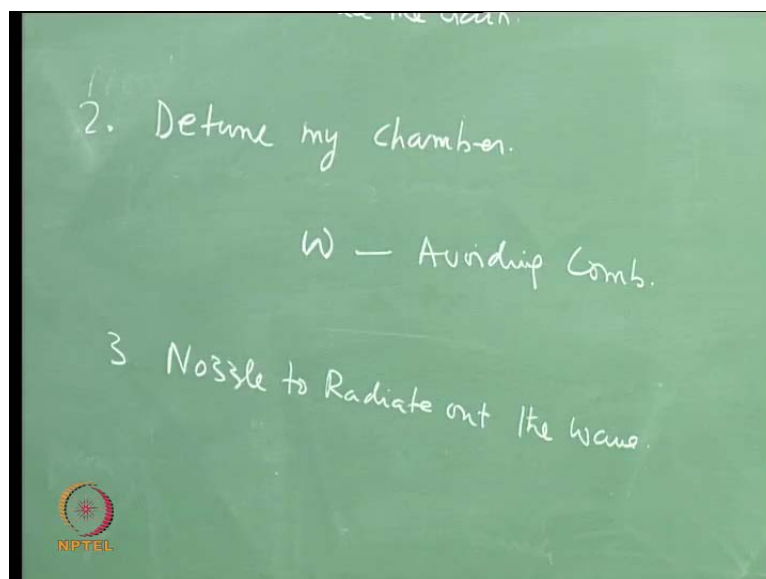 2. Detune my chamber.
W — Avoiding Comb.
3 Nozzle to Radiate out the wave.
NPTEL